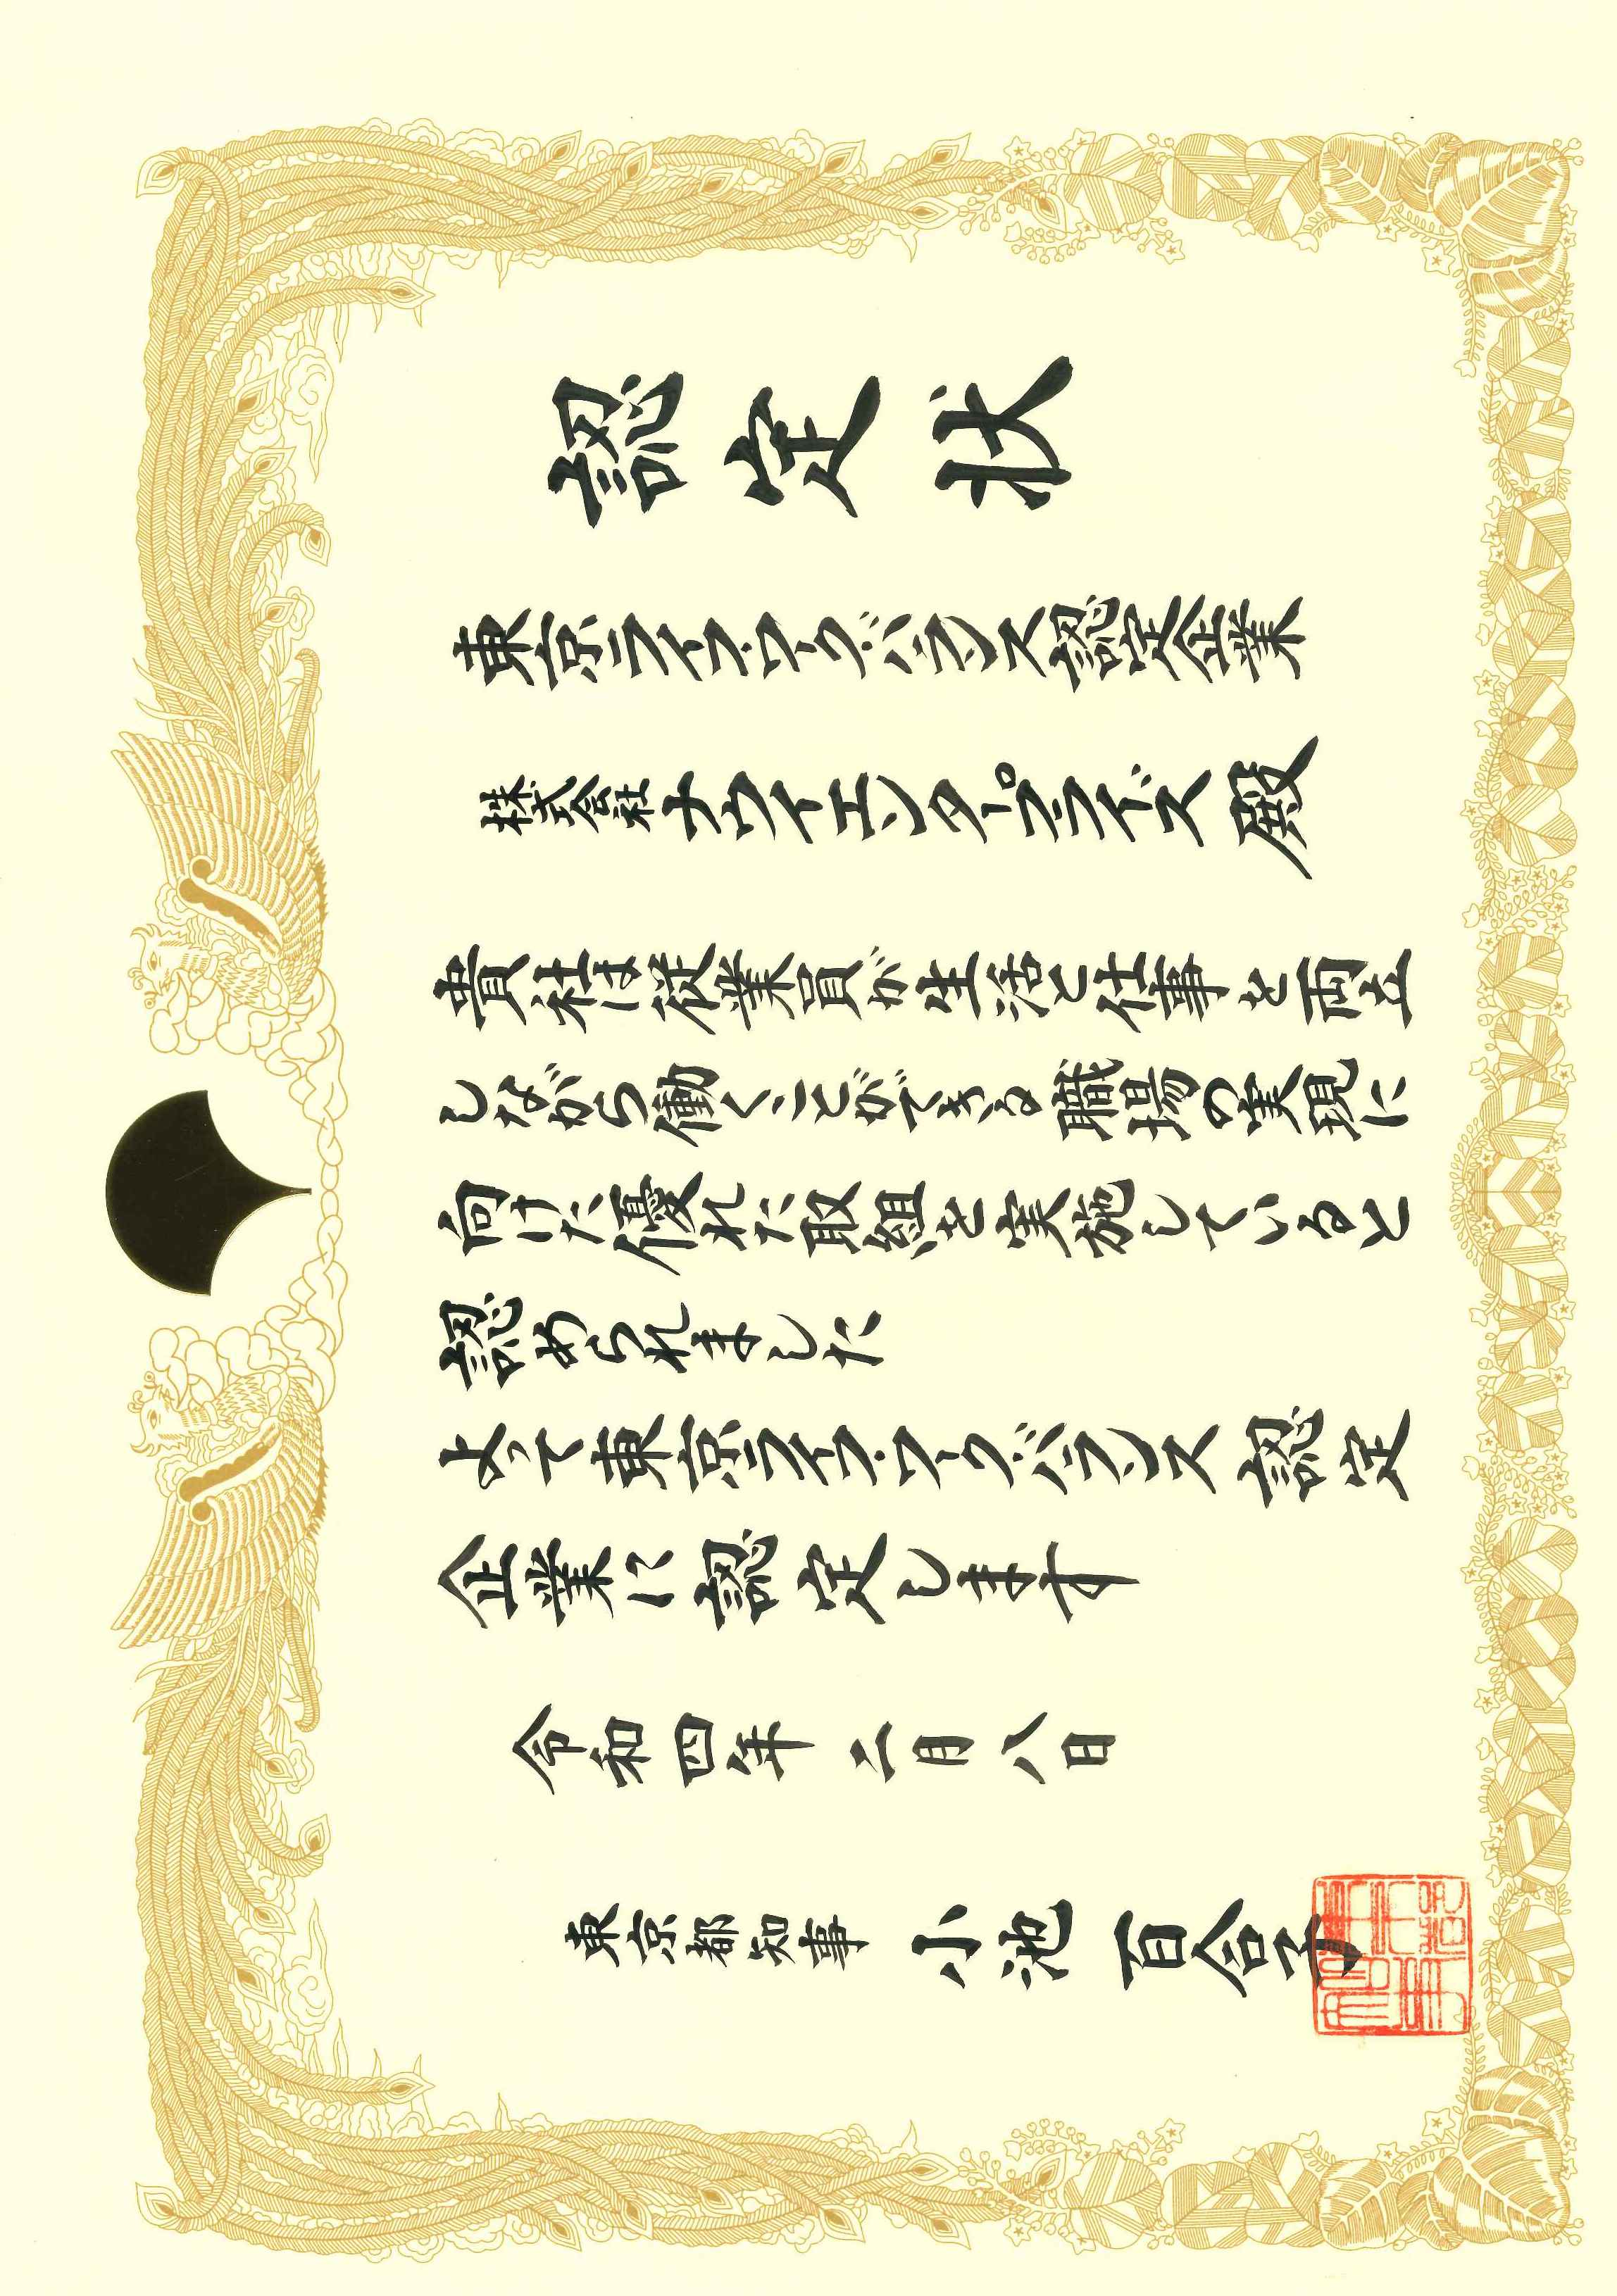 認定状
東京ライフ・ワーク・バランス認定企業
株式会社ナウイエンタープライズ 殿
貴社は従業員が生活と仕事を両立
しながら働くことができる職場の実現に
向けた優れた取組を実施していると
認められました
よって東京ライフ・ワーク・バランス認定
企業に認定します
令和四年二月八日
東京都知事 小池 百合子